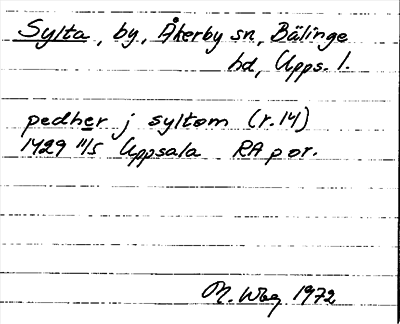 Sylta, by, Åkerby sn, Bälinge
hd, Upps. l.
pedher j syltom (r. 14)
1429 11/5 Uppsala RA p or.
M. Wbg 1972